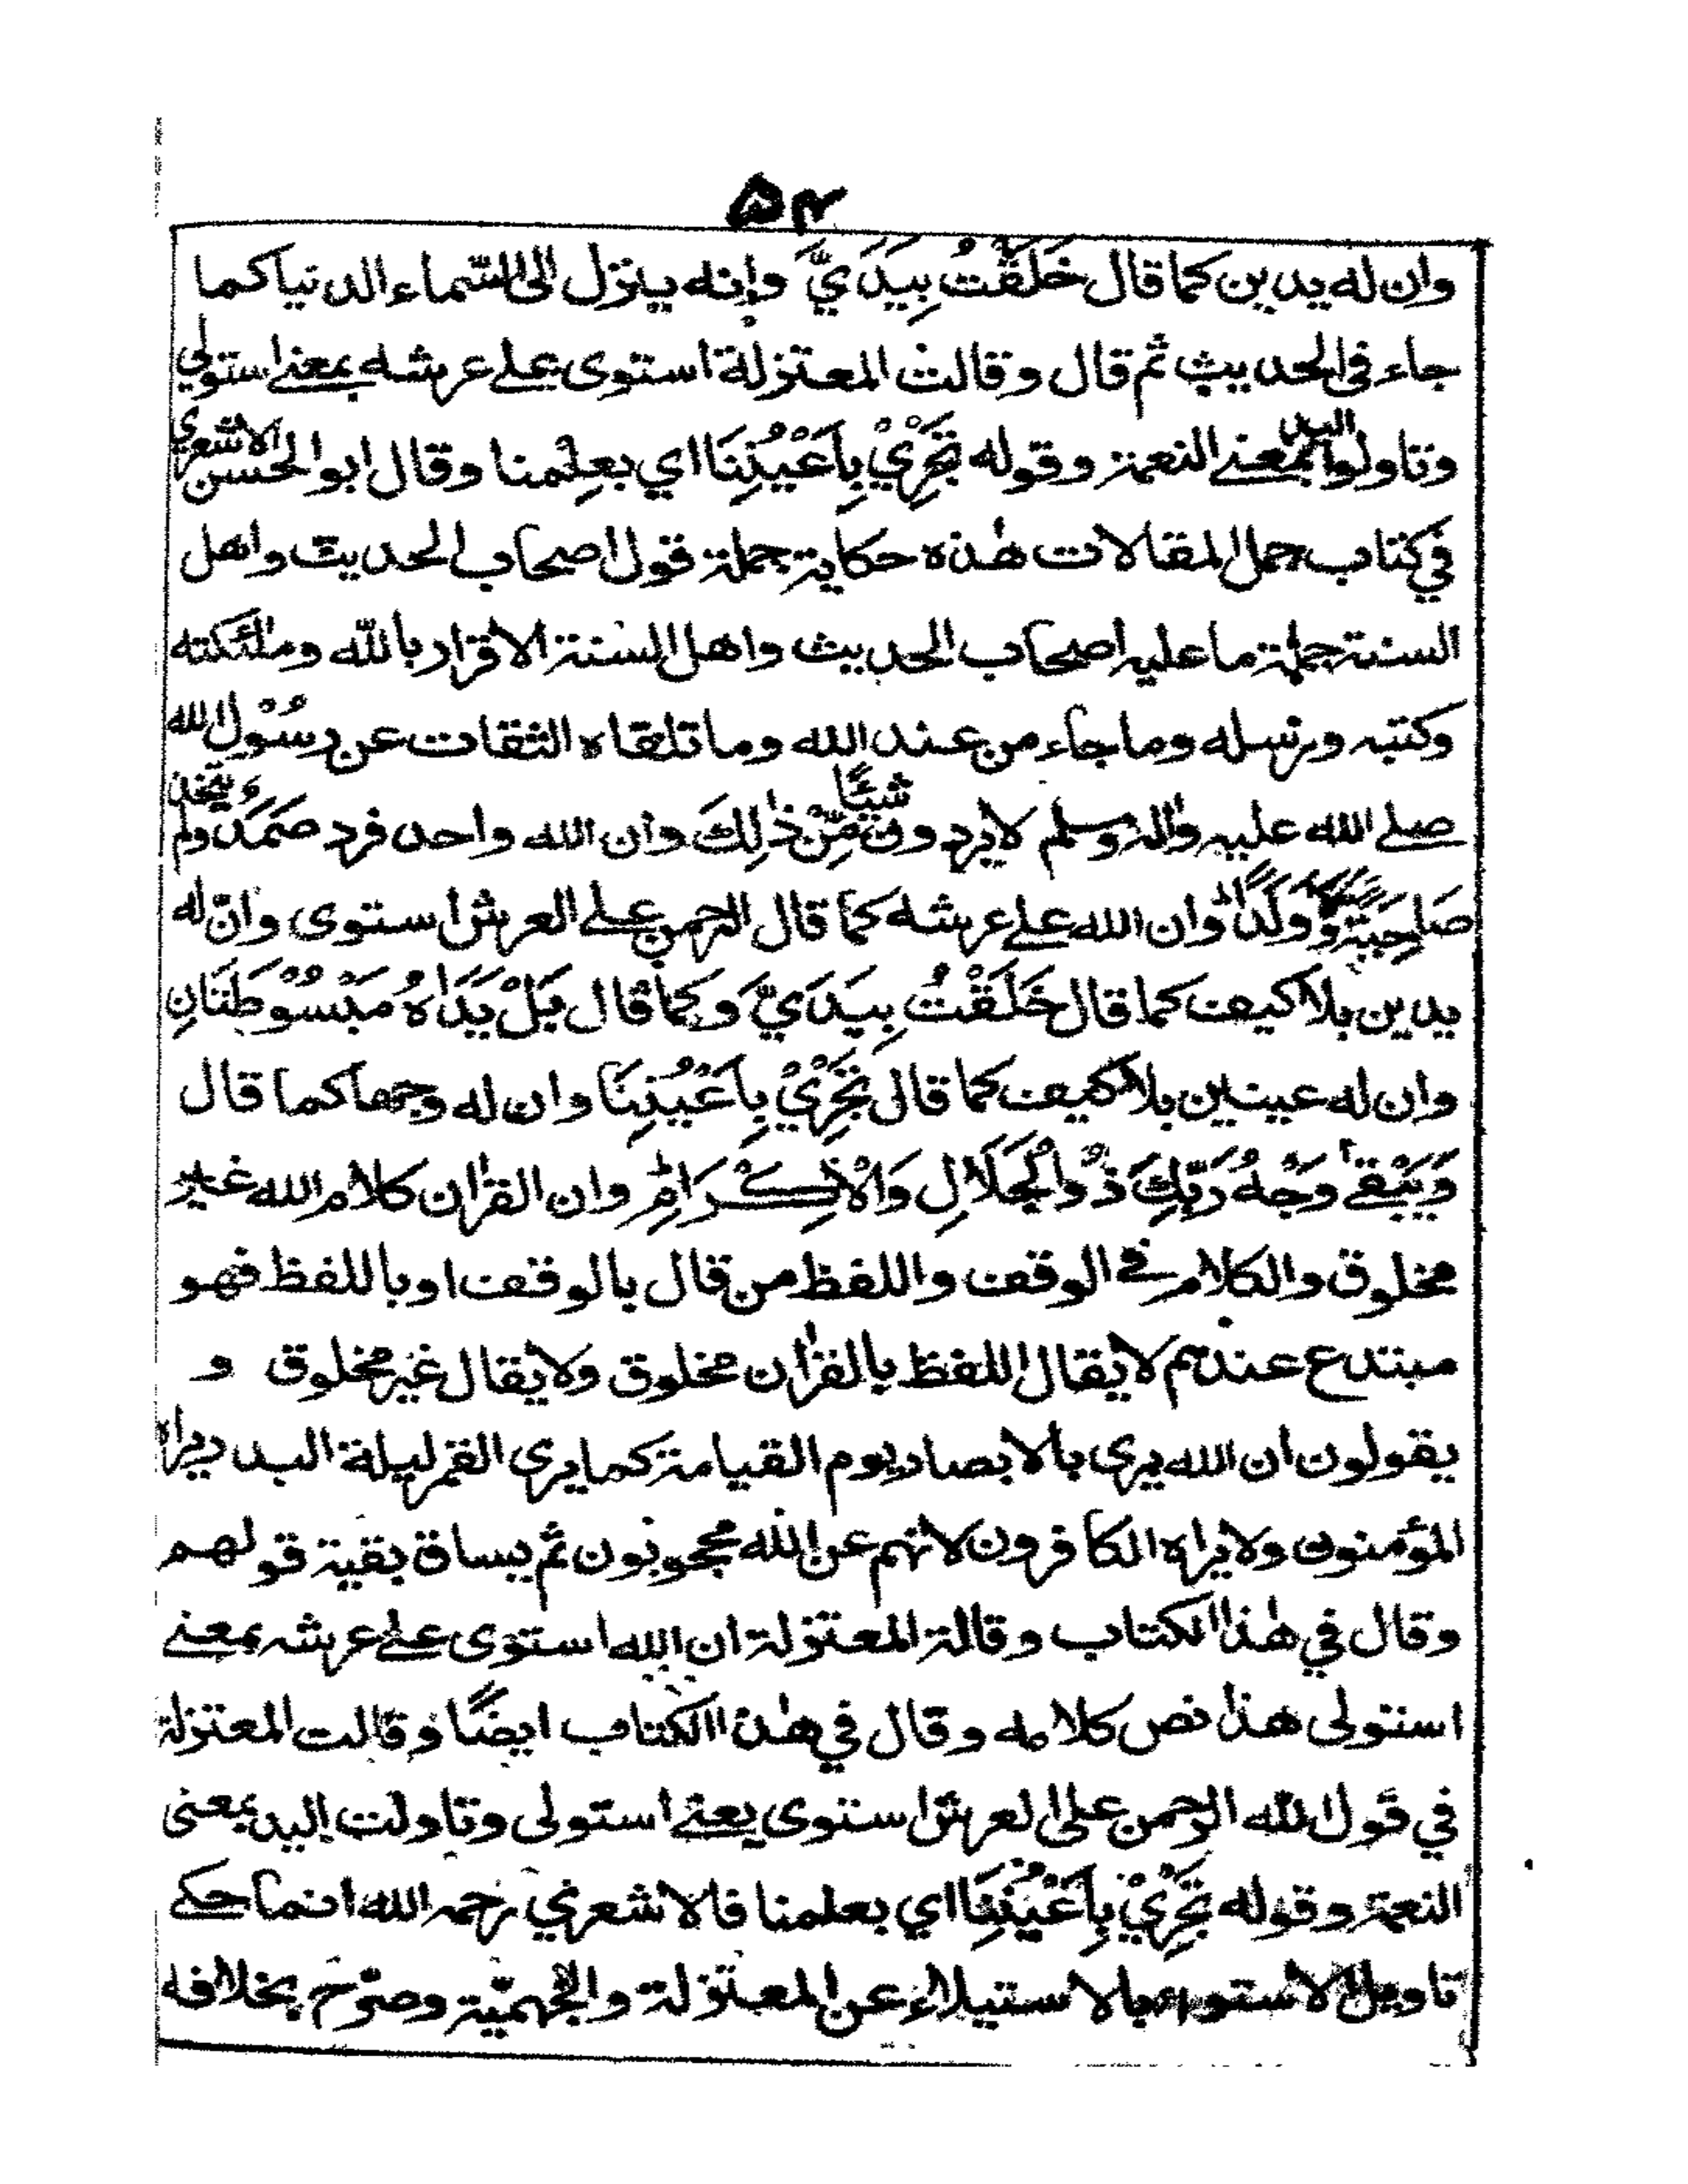 ۵۴
وان له يدين كما قال خَلَقْتُ بِيَدَيَّ وانه ينزل الى السّماء الدنيا كما
جاء فى الحديث ثم قال وقالت المعتزلة استوى على عرشه بمعنے استولي
وتاولوا اليد بمعنے النعمة وقوله تَجْرِيْ بِاَعْيُنِنَا اي بعلمنا وقال ابوالحسن الاشعري
في كتاب جمل المقالات هٰذه حكاية جملة قول اصحاب الحديث واهل
السنة جملة ما عليه اصحاب الحديث واهل السنة الاقرار بالله وملٰئكته
وكتبه ورسله وما جاء من عند الله وما تلقاه الثقات عن رسُوْل الله
صلے الله عليه واٰله وسلم لايردون شيئًا مِّنْ ذٰلِكَ وان الله واحد فرد صَمَدٌ ولم يتخذ
صَاحِبَةً وَّلَا وَلَدًا وان الله علے عرشه كما قال الرحمن علے العرش استوى وانّ له
يدين بلا كيف كما قال خَلَقْتُ بِيَدَيَّ وَكما قال بَلْ يَدَاهُ مَبْسُوْطَتَانِ
وان له عينين بلا كيف كما قال تَجْرِيْ بِاَعْيُنِنَا وان له وجها كما قال
وَيَبْقٰے وَجْهُ رَبِّكَ ذُو الْجَلَالِ وَالْاِكْرَامِ وان القراٰن كلام الله غير
مخلوق والكلام فے الوقف واللفظ من قال بالوقف او باللفظ فهو
مبتدع عندهم لايقال اللفظ بالقراٰن مخلوق ولايقال غير مخلوق و
يقولون ان الله يرى بالابصار يوم القيامة كما يرى القمر ليلة البدر يراه
المؤمنون ولا يراه الكافرون لانهم عن الله محجوبون ثم يساق بقية قولهم
وقال في هٰذا الكتاب وقالة المعتزلة ان الله استوى علے عرشه بمعنے
استولى هذا نص كلامه وقال في هٰذا الكتاب ايضًا وقالت المعتزلة
في قول الله الرحمن على العرش استوى يعنے استولى وتاولت اليد بمعنى
النعمة وقوله تَجْرِيْ بِاَعْيُنِنَا اي بعلمنا فالاشعري رحمه الله انما حكے
تاويل الاستواء بالاستيلاء عن المعتزلة والجهميّة وصرّح بخلافه